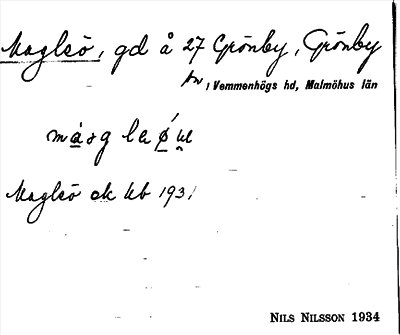 Maglsö, gd å 27 Grönby, Grönby
sn, Vemmenhögs hd, Malmöhus län
Maglsö ek kb 1931
NILS NILSSON 1934